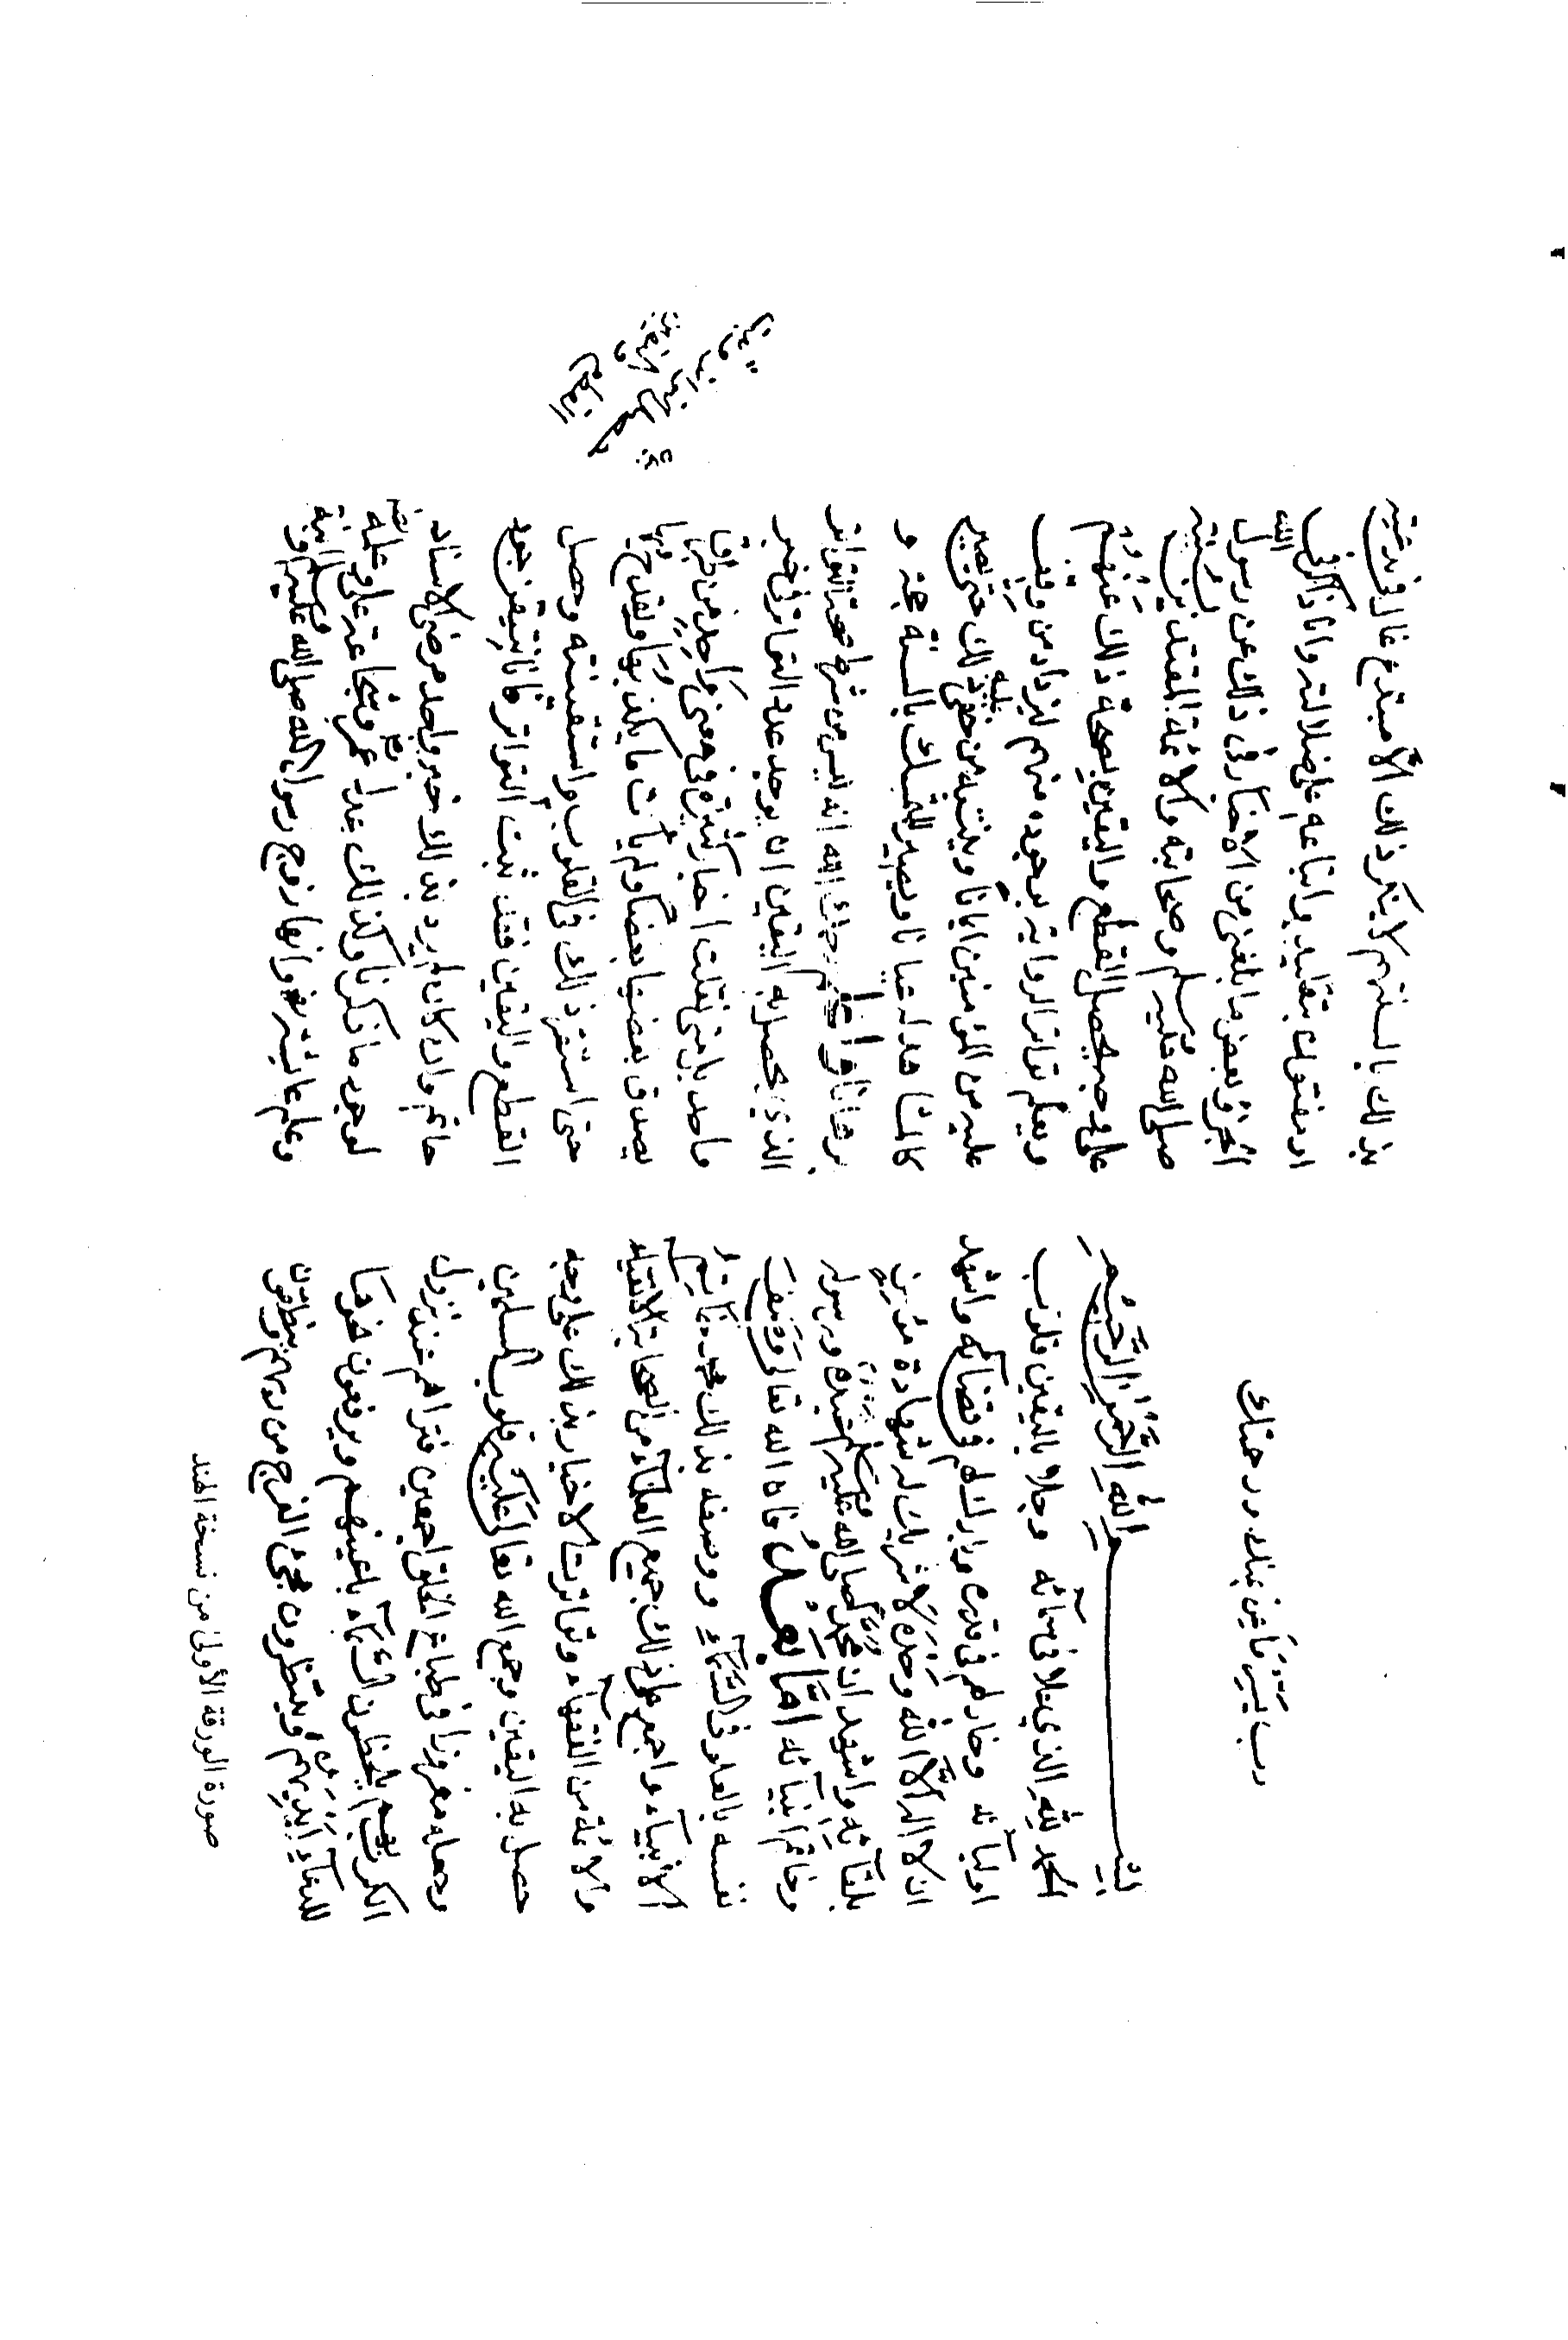 رب يسر فأعن بمنك ورحمتك
بسم الله الرحمن الرحيم
الحمد لله الذي علا في سمائه وجلا باليقين قلوب
اوليائه وخار لهم في قدره وبارك لهم في قضائه واشهد
ان لا اله الا الله وحده لا شريك له شهادة مؤمن
بلقائه واشهد ان محمدا صلى الله عليه وسلم عبده ورسوله
وخاتم انبيائه اما بعد فان الله تعالى وصف
نفسه بالعلو في السماء ووصفه بذلك محمد خاتم
الانبياء واجمع على ذلك جميع العلماء من الصحابة الاتقياء
والائمة من الفقهاء وتواترت الاخبار بذلك على وجه
حصل به اليقين وجمع الله تعالى عليه قلوب المسلمين
وجعله مغروزا في طباع الخلق اجمعين فتراهم عند نزول
الكرب بهم يلحظون السماء باعينهم ويرفعون نحوها
للدعاء ايديهم وينتظرون مجيء الفرج من ربهم وينطقون
بذلك بالسنتهم لا ينكر ذلك الا مبتدع غال في بدعته
او مفتون بتقليده واتباعه على ضلالته وانا ذاكر في
الجزء بعض ما بلغني من الاخبار في ذلك عن رسول الله
صلى الله عليه وسلم وصحابته والائمة المقتدين بسنته
على وجه يحصل القطع واليقين بصحة ذلك عنهم
ويعلم تواتر الرواية بوجوده منهم ليزداد من وقف
عليه من المؤمنين ايمانا وينتبه من خفي عليه ذلك حتى يصير
كالمشاهد له عيانا ويصير للتمسك بالسنة حجة و
برهانا واعلم رحمك الله انه ليس من شرط صحة التواتر
الذي يحصل به اليقين ان يوجد عدد التواتر في خبر
واحد بل متى نقلت اخبار كثيرة في معنى واحد من طرق
يصدق بعضها بعضا ولم يأت ما يكذبها ويقدح فيها
حتى استقر ذلك في القلوب واستيقنته وحصل
القطع واليقين فقد ثبت التواتر فاناتيقن جود
حاتم وان كان لم يرد بذلك خبر واحد مرضي الاسناد
لوجود ما ذكرنا وكذلك عدل عمر وشجاعة علي وعلمه
وعلم عائشة رض وانها زوج رسول الله صلى الله عليه وسلم وابنة
صورة الورقة الأولى من نسخة الهند